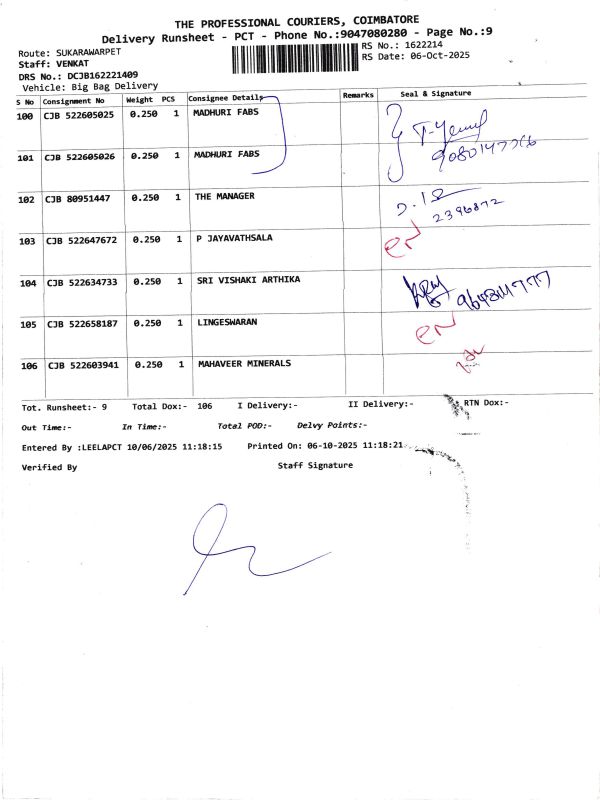 THE PROFESSIONAL COURIERS, COIMBATORE
Delivery Runsheet - PCT - Phone No.:9047080280 - Page No.:9
Route: SUKARAWARPET
RS No.: 1622214
Staff: VENKAT
RS Date: 06-Oct-2025
DRS No.: DCJB162221409
Vehicle: Big Bag Delivery
S No Consignment No Weight PCS Consignee Details Remarks Seal & Signature
100 CJB 522605025 0.250 1 MADHURI FABS
101 CJB 522605026 0.250 1 MADHURI FABS
102 CJB 80951447 0.250 1 THE MANAGER
2396872
103 CJB 522647672 0.250 1 P JAYAVATHSALA
104 CJB 522634733 0.250 1 SRI VISHAKI ARTHIKA
105 CJB 522658187 0.250 1 LINGESWARAN
106 CJB 522603941 0.250 1 MAHAVEER MINERALS
Tot. Runsheet:- 9 Total Dox:- 106 I Delivery:- II Delivery:- RTN Dox:-
Out Time:- In Time:- Total POD:- Delvy Points:-
Entered By :LEELAPCT 10/06/2025 11:18:15 Printed On: 06-10-2025 11:18:21
Verified By Staff Signature